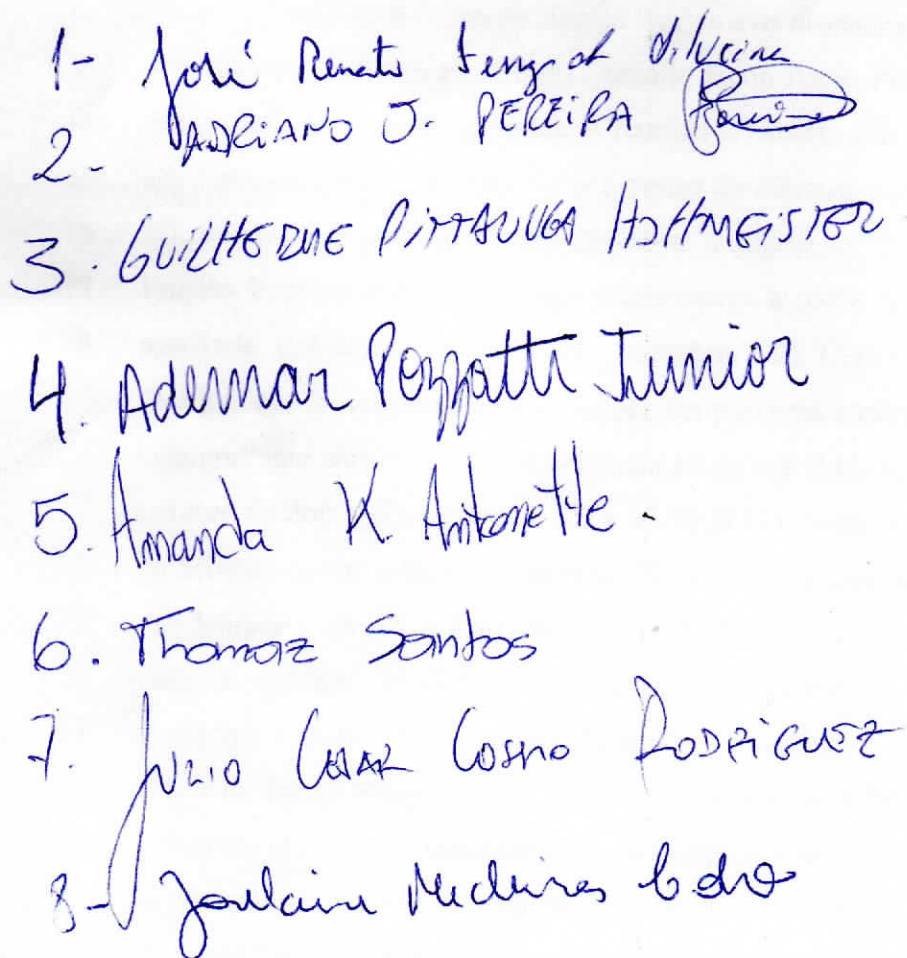 1- José Renato Ferraz da Silveira
2- ADRIANO J. PEREIRA
3. GUILHERME PITTALUGA HOFFMEISTER
4. Ademar Pozzatti Junior
5. Amanda K Antonette.
6. Thomaz Santos
7. JULIO CESAR COSSIO RODRIGUEZ
8- Medeiros